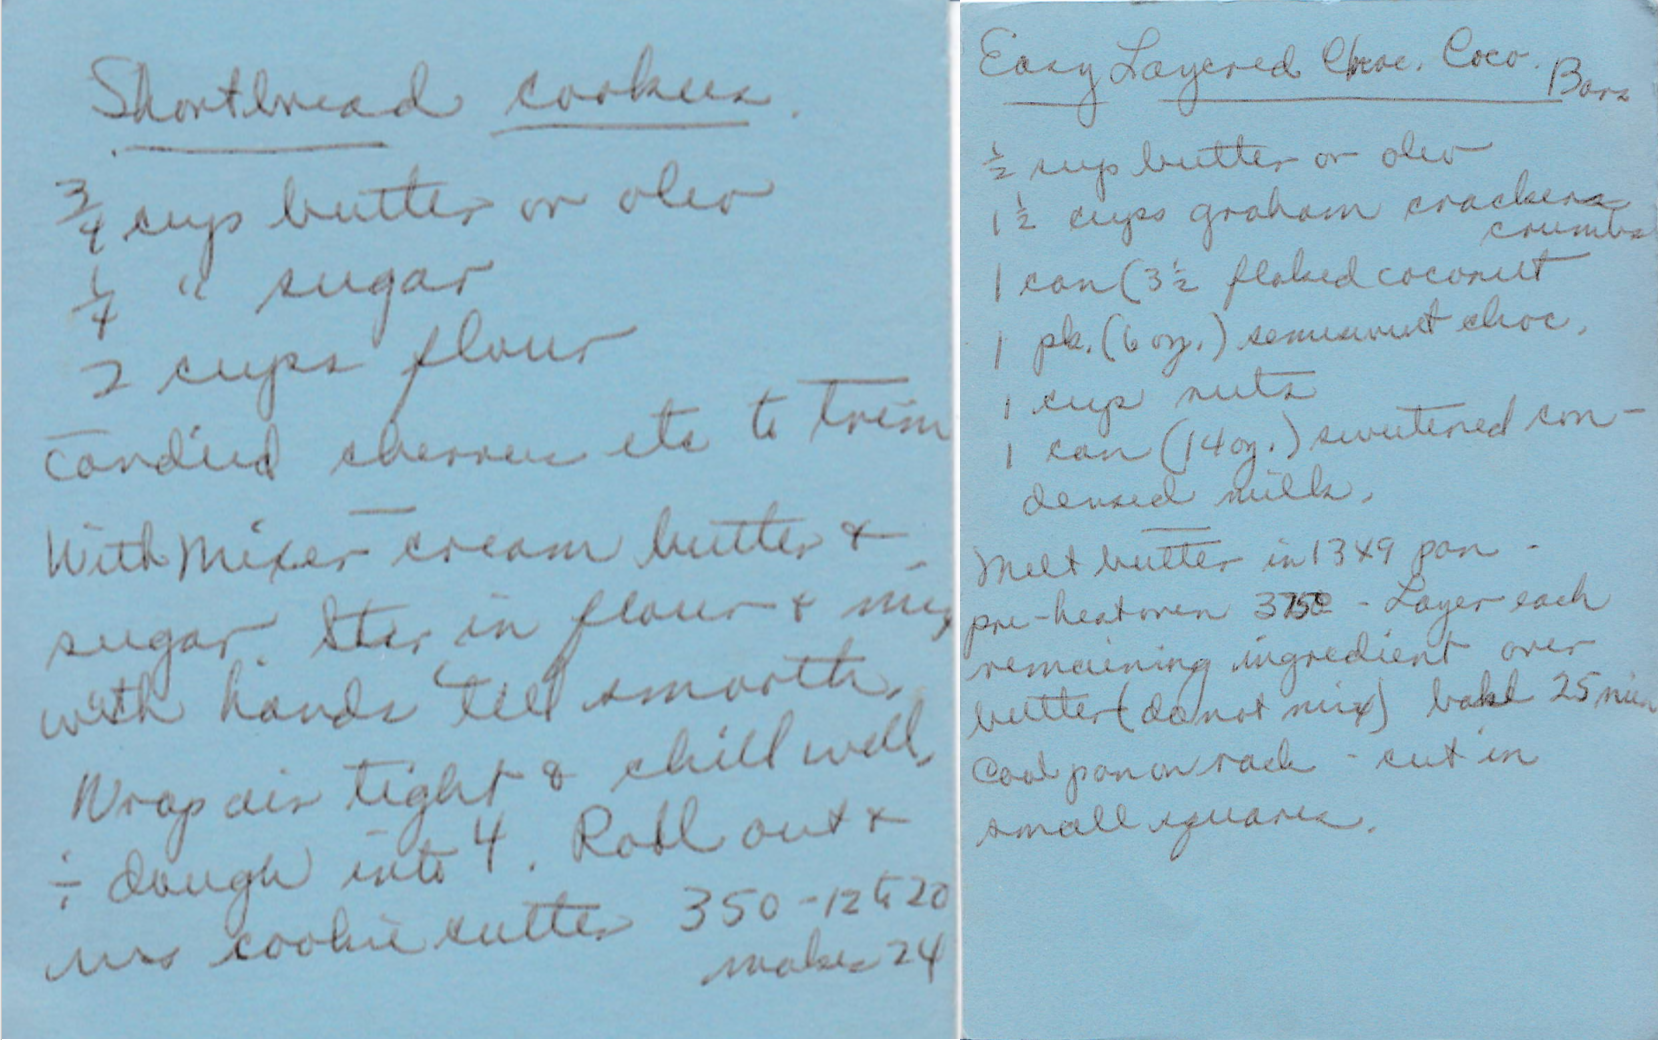 Shortbread cookies.
3/4 cup butter or oleo
1/4 " sugar
2 cups flour
Candied cherries etc to trim
With Mixer cream butter &
sugar. Stir in flour & mix
with hands 'till smooth.
Wrap air tight & chill well,
÷ dough into 4. Roll out &
use cookie cutter 350 - 12 to 20
makes 24
Easy Layered Choc. Coco. Bars
1/2 cup butter or oleo
1 1/2 cups graham crackers
crumbs
1 can (3 1/2 flaked coconut
1 pk. (6 oz.) semisweet choc.
1 cup nuts
1 can (14 oz.) sweetened con-
densed milk.
Melt butter in 13x9 pan -
pre-heat oven - Layer each
remaining ingredient over
butter (do not mix) bake 25 min
Cool pan on rack - cut in
small squares.